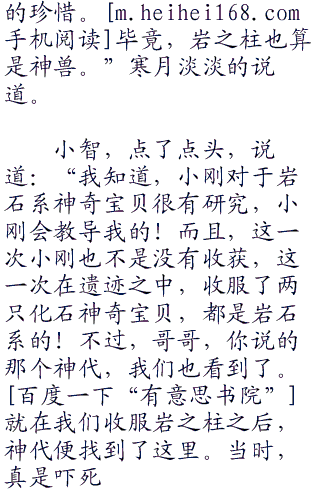 的珍惜。[m.heihei168.com
手机阅读]毕竟，岩之柱也算
是神兽。”寒月淡淡的说
道。
小智，点了点头，说
道：“我知道，小刚对于岩
石系神奇宝贝很有研究，小
刚会教导我的！而且，这一
次小刚也不是没有收获，这
一次在遗迹之中，收服了两
只化石神奇宝贝，都是岩石
系的！不过，哥哥，你说的
那个神代，我们也看到了。
[百度一下“有意思书院”]
就在我们收服岩之柱之后，
神代便找到了这里。当时，
真是吓死